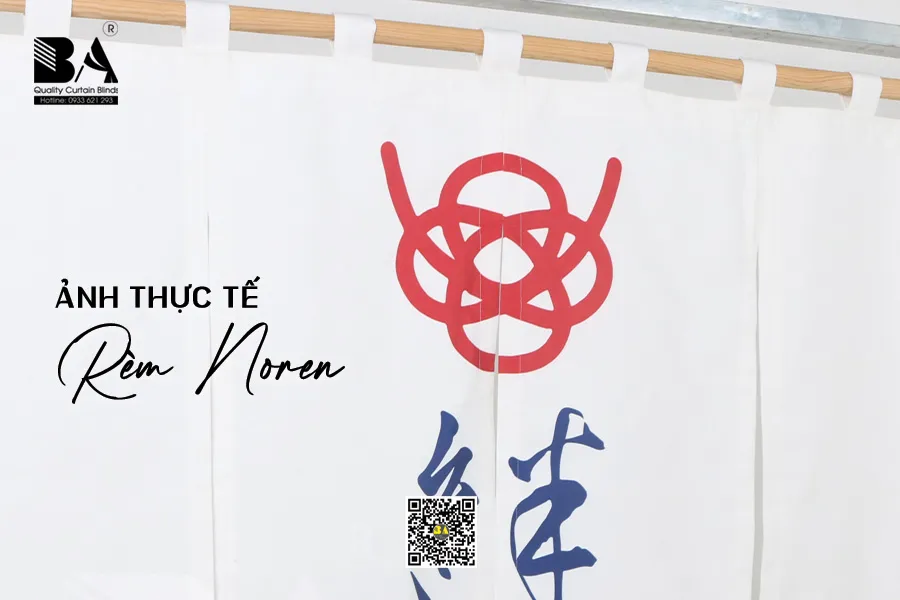 BA®
Quality Curtain Blinds
Hotline: 0933 621 293
ẢNH THỰC TẾ
Rèm Noren
絆
BA